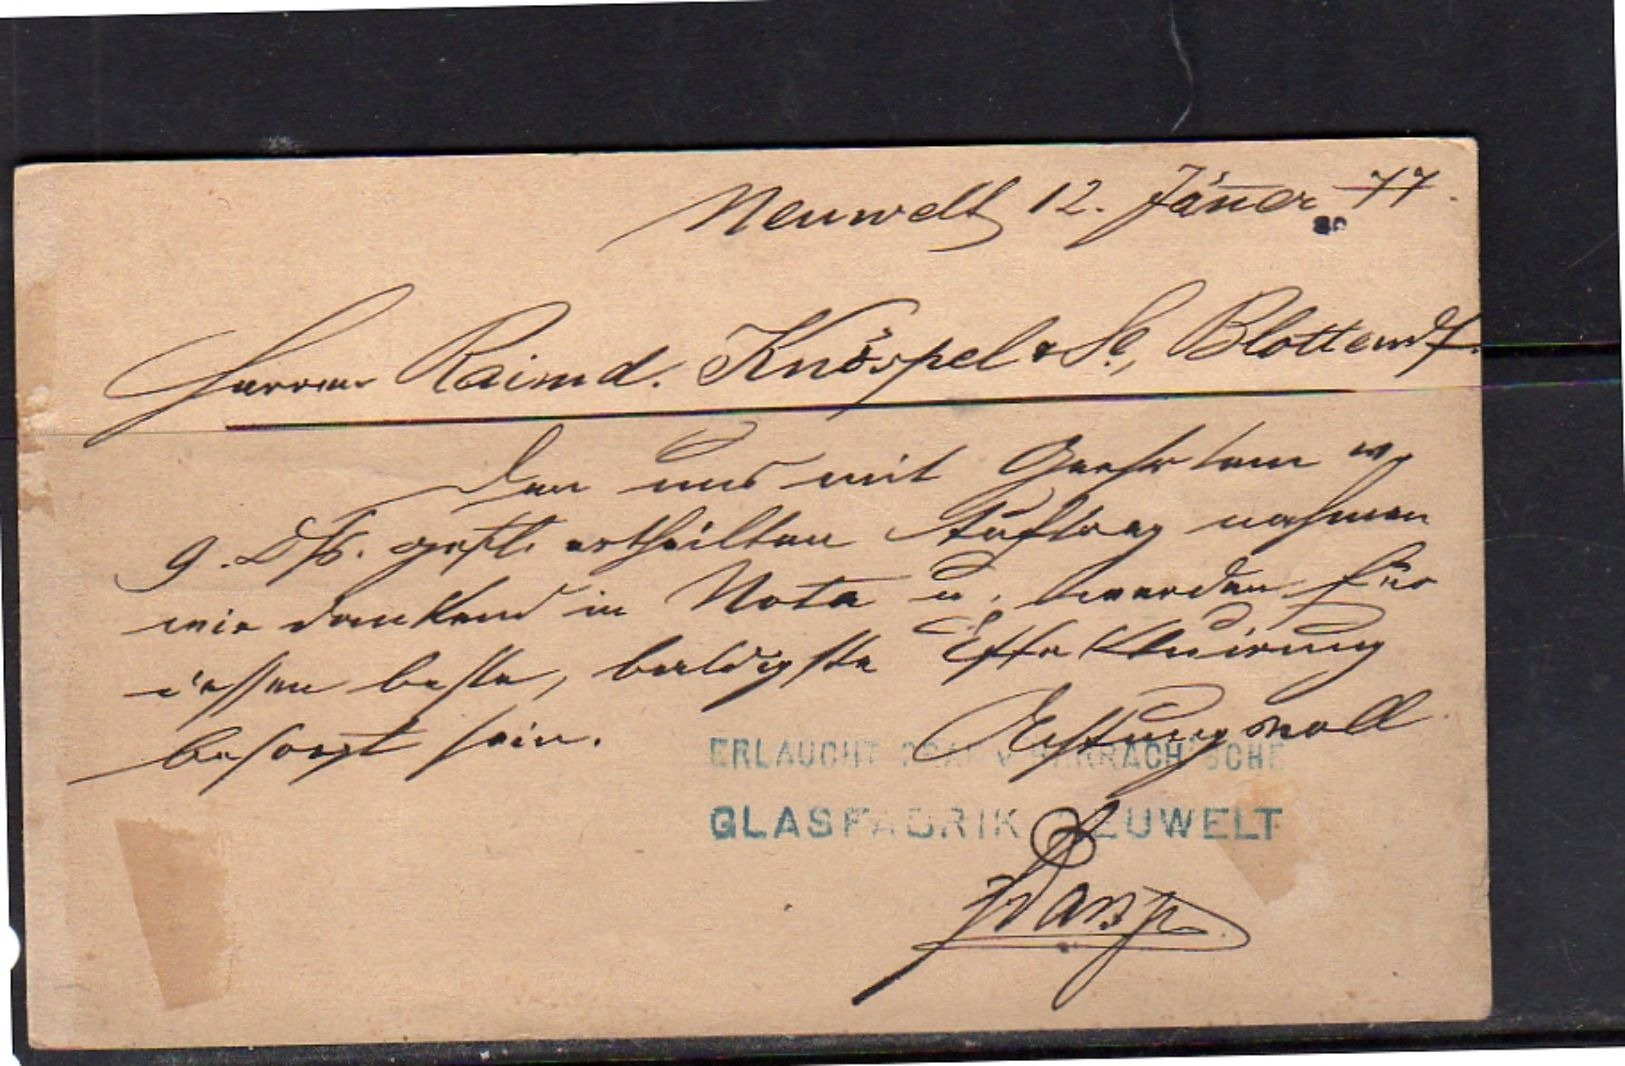 Neuwelt 12. Jänner 77.
Herren Raimd. Knöspel & Se, Blottendf.
Den uns mit Geehrtem v.
9. Dss. gefl. ertheilten Auftrag nahmen
wir dankend in Nota u. werden für
dessen beste, baldigste Effektuirung
besorgt sein. Achtungsvoll
ERLAUCHT GRAF V HARRACH'SCHE
GLASFABRIK NEUWELT